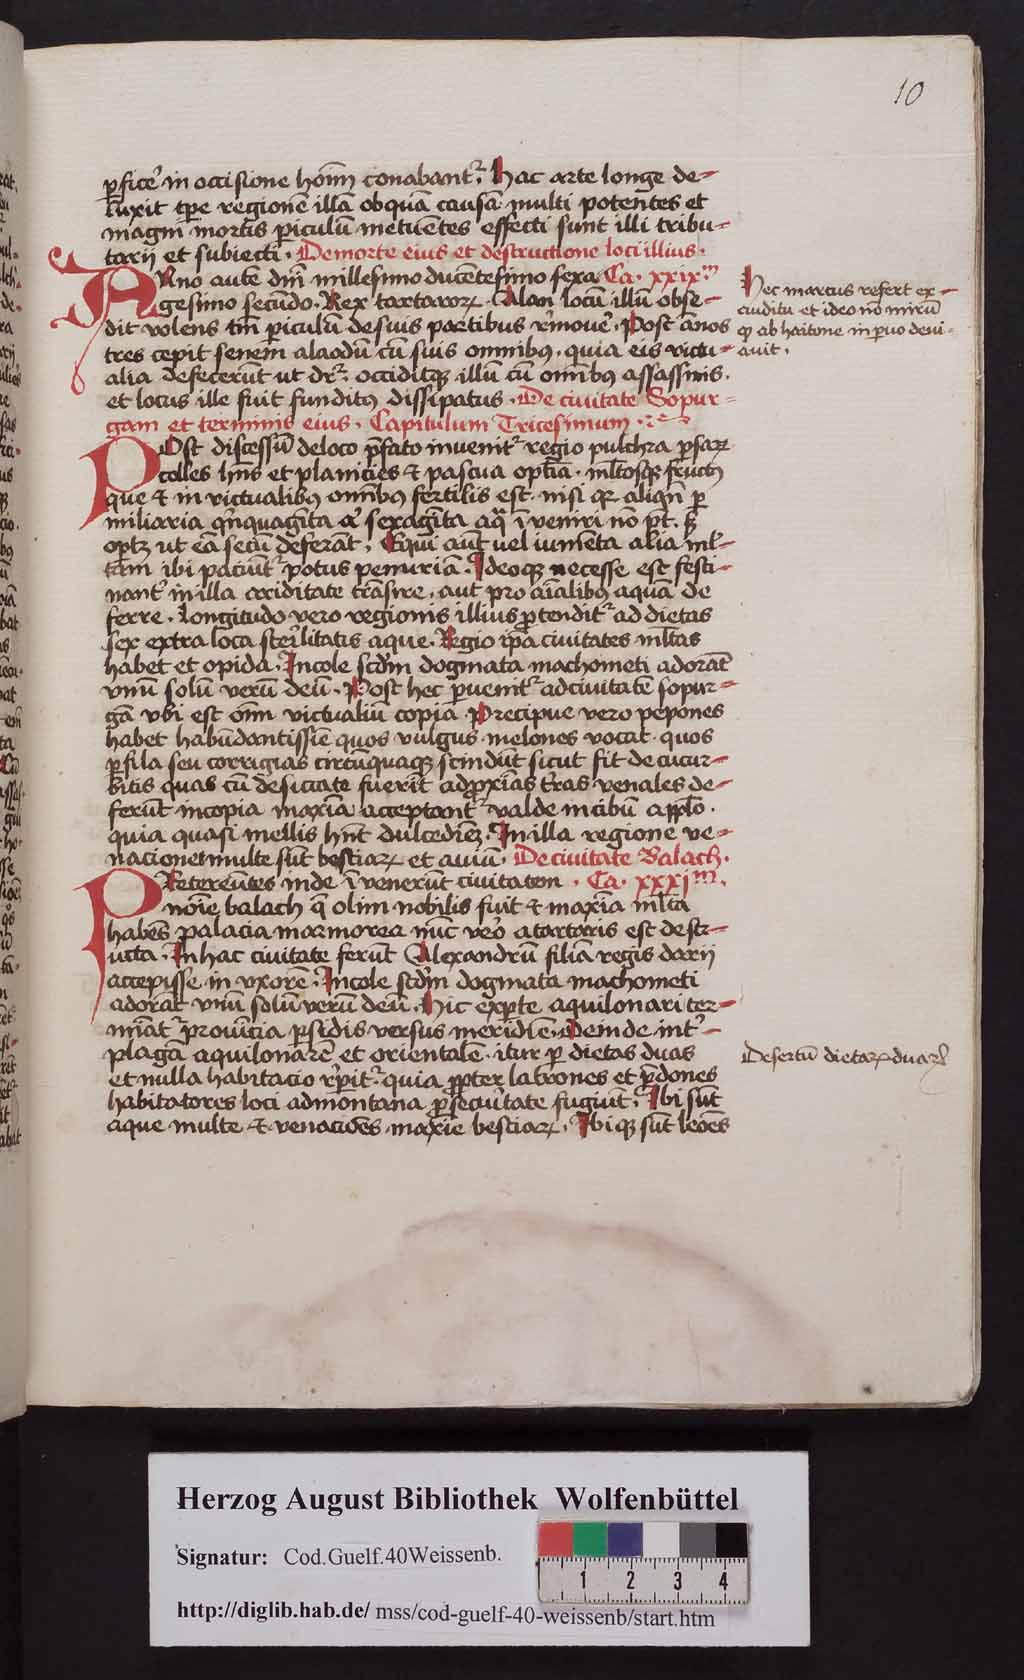 10
ꝑficeˀ in occisione hoīm conabantˀ. Hac arte longe de-
luxit tꝑe regionē illā ob quā causā multi potentes et
magni mortis ꝑiculū metuentes effecti sunt illi tribu-
tarij et subiecti. De morte eius et destructione loci illius.
ANno autē dn̄i millesimo ducētesimo sexa Ca. xxixᵐ
gesimo secūdo. Rex tartarorꝝ Alau locū illū obse-
dit volens tm̄ ꝑiculū de suis partibus rˀmoueˀ. Post ānos
tres cepit senem alaodū cū suis omnibꝯ. quia eis victu-
alia defecerūt ut drˀ. occiditqꝫ illū cū oīnibꝯ assassinis.
et locus ille fuit funditꝯ dissipatus. De ciuitate Sopur-
gam et terminis eius. Capitulum Tricesimum.
POst discessū de loco p̄fato inuenitˀ regio pulchra
colles hn̄s et planicies & pascua optīa.
que & in victualibꝯ omībꝯ fertilis est. nisi qꝛ aliqn̄ ꝑ
miliaria qˀnquagīta aˀ sexagīta aq̄ īueniri nō pt. sꝫ
optꝫ ut eā secū deferāt. Equi aūt uel iumēta alia ml̄-
tam ibi paciūtˀ potus penuriā. Ideoqꝫ necesse est festi-
nantˀ in illa ariditate trāsire. aut pro aīalibꝯ aquā de
ferre. Longitudo vero regionis illius ꝓtenditˀ ad dietas
sex extra loca sterˀlitatis aque. Regio ip̄a ciuitates ml̄tas
habet et opida. Incole scd̄m dogmata machometi adorāt
vnū solū verū deū. Post hec ꝑuenitˀ ad ciuitatē sopur-
gā vbi est oīm victualiū copia. Precipue vero pepones
habet habūdantissīe quos vulgus melones vocat. quos
ꝑ fila seu corrigias circūquaqꝫ scindūt sicut fit de cucur-
bitis quas cū desiccate fuerīt ad ꝓxīas tˀras venales de-
ferūt in copia maxīa acceptantˀ valde in cibū
quia quasi mellis hn̄t dulcediēꝫ. In illa regione ve-
nacionem multe sūt bestiarꝝ et auiū. De ciuitate Balach.
PReterēntes inde īuenerūt ciuitatem. Ca. xxxjᵐ.
noīe balach q̄ olim nobilis fuit & maxīa ml̄ta
habēs palacia marmorea nūc veˀo a tartaris est destr-
ucta. In hac ciuitate ferūt Alexandrū filiā regis darij
accepisse in vxorē. Incole scd̄m dogmata machometi
adorāt vnū solū verū deū. Hic ex ꝑte aquilonari ter-
mīatˀ prouīcia ꝑsidis versus meridiē. Deinde intˀ-
plagā aquilonarē et orientalē. itur ꝑ dietas duas
et nulla habitacio rˀꝑitˀ. quia ꝓpter latrones et p̄dones
habitatores loci ad montana ꝓ secuˀtate fugiūt. Ibi sūt
aque multe & venacioēs maxīe bestiarꝝ. Ibi qꝫ sūt leoēs
Hec marcus refert ex-
auditu et ideo nō mirū
ꝙ ab haitone in ꝑuo deui-
auit.
Desertū dietarꝝ duarꝝ
Herzog August Bibliothek Wolfenbüttel
Signatur: Cod.Guelf.40Weissenb.
1 2 3 4
http://diglib.hab.de/ mss/cod-guelf-40-weissenb/start.htm